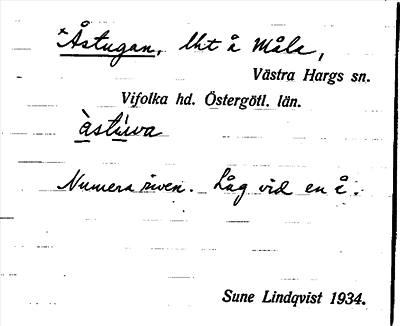 *Åstugan, lht å Måla,
Västra Hargs sn.
Vifolka hd. Östergötl. län.
àstùwa
Numera riven. Låg vid en å.
Sune Lindqvist 1934.